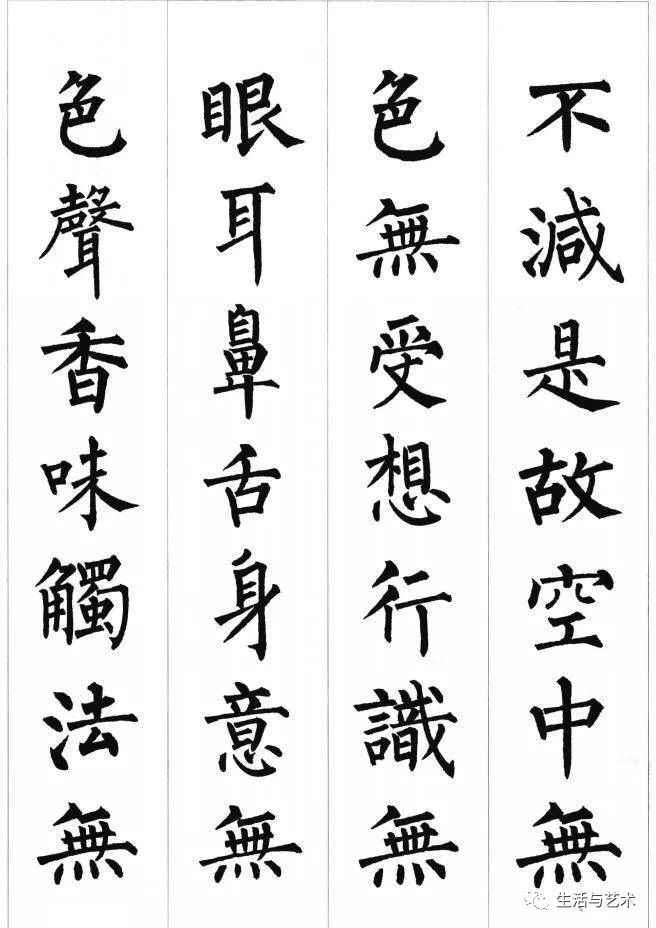 不減是故空中無
色無受想行識無
眼耳鼻舌身意無
色聲香味觸法無
生活与艺术